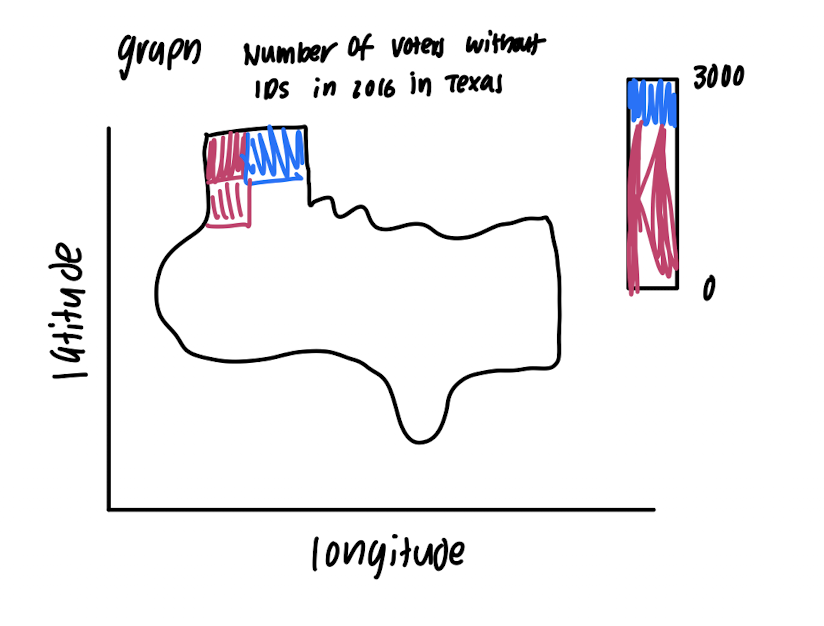 graph
Number of voters without
IDs in 2016 in Texas
3000
0
latitude
longitude